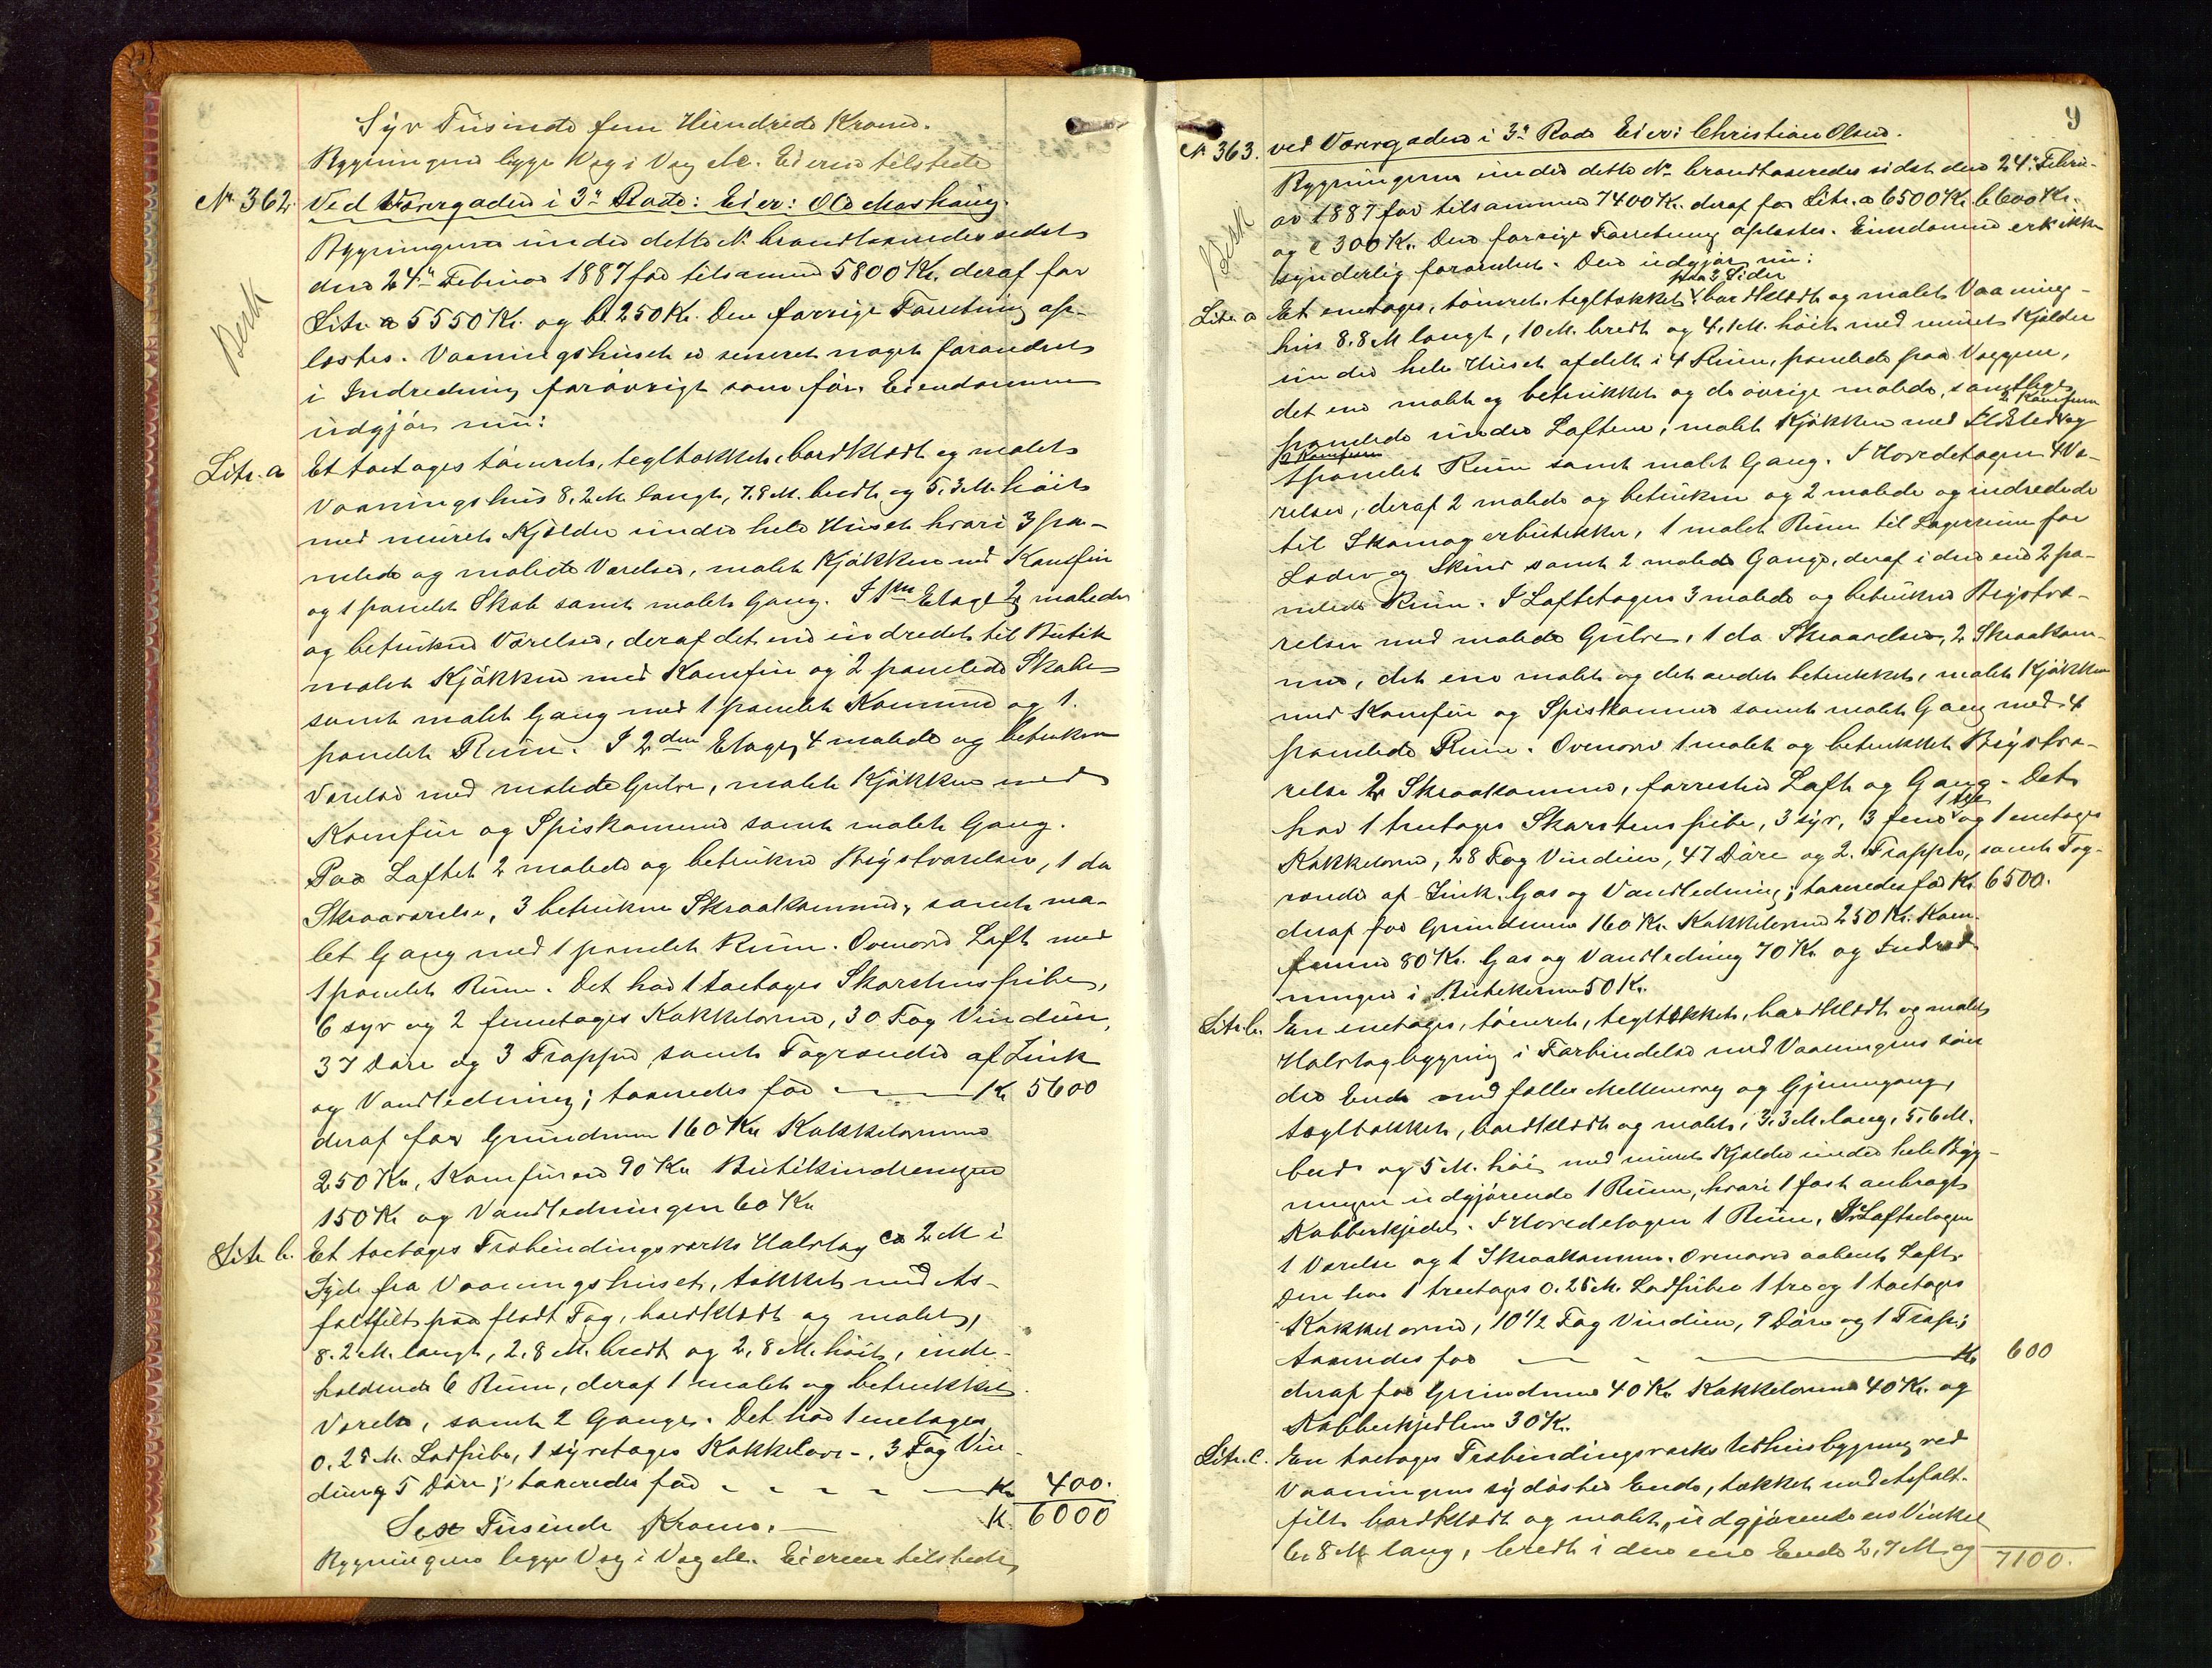 Syv Tusinde fem Hundrede Kroner.
Bygningerne ligge Væg i Væg &c. Eieren tilstede
No 362. Ved Værergaden i 3die Rode: Eier: Ole Moshaug.
Bygningerne under dette No brandtaxeredes sidst
den 24de Februar 1887 for tilsammen 5800 Kr. deraf for
Litr. a 5550 Kr. og b. 250 Kr. Den forrige Forretning op-
læstes. Vaaningshuset er senere noget forandret
i Indredning forøvrigt som før. Eiendommen
udgjør nu:
Besk
Litr. a Et toetages tømret, tegltækket, bordklædt og malet
Vaaningshus 8.2 M. langt, 7.8 M. bredt og 5.3 M. høit
med muret Kjælder under hele Huset hvori 3 pa-
nelede og malede Værelser, malet Kjøkken med Komfur
og 1 panelet Skab samt malet Gang. I 1ste Etage 2 malede
og betrukne Værelser, deraf det ene indredet til Butik
malet Kjøkken med Komfur og 2 panelede Skabe
samt malet Gang med 1 panelet Kammer og 1.
panelet Rum. I 2den Etage 4 malede og betrukne
Værelser med malede Gulve, malet Kjøkken med
Komfur og Spiskammer samt malet Gang.
Paa Loftet 2 malede og betrukne Brystværelser, 1 do
Skraaværelse, 3 betrukne Skraakammere, samt ma-
let Gang med 1 panelet Rum. Ovenover Loft med
1 panelet Rum. Det har 1 toetages Skorstenspibe,
6 syv og 2 femetages Kakkelovne, 30 Fag Vinduer,
37 Døre og 3 Trapper samt Tagrender af Zink
og Vandledning; taxeredes for Kr. 5600
deraf for Grundmur 160 Kr. Kakkelovnene
250 Kr., Komfurene 90 Kr. Butikindredningen
150 Kr. og Vandledningen 60 Kr.
Litr. b. Et toetages Trebindingsverks Halvtag ca 2 M. i
Syd fra Vaaningshuset, tækket med As-
faltfilt paa fladt Tag, bordklædt og malet,
8.2 M. langt, 2.8 M. bredt og 2.8 M. høit, inde-
holdende 6 Rum, deraf 1 malet og betrukket
Værelse, samt 2 Gange. Det har 1 enetages
0.25 M. Lodpibe, 1 syvetages Kakkelovn, 3 Fag Vin-
duer, 5 Døre; taxeredes for Kr. 400.
Sex Tusinde Kroner. K. 6000
Bygningerne ligge Væg i Væg &c. Eieren tilstede
9
No 363. ved Værergaden i 3die Rode Eier: Christian Olsen.
Bygningerne under dette No brandtaxeredes sidst den 24de Febru-
ar 1887 for tilsammen 7400 Kr. deraf for Litr. a 6500 Kr. b 600 Kr.
og c 300 Kr. Den forrige Forretning oplæstes. Eiendommen er ikke
synderlig forandret. Den udgjør nu:
Besk
paa 2 Sider
Litr. a Et enetages, tømret, tegltækket, bordklædt og malet Vaanings-
hus 8.8 M. langt, 10 M. bredt og 4.1 M. høit med muret Kjælder
under hele Huset afdelt i 4 Rum, panelede paa Væggene,
det ene malet og betrukket og de øvrige malede, samtlige
2 Komfurer
panelede under Loftene; malet Kjøkken med Ildsted og
2 Komfurer
1 panelet Rum samt malet Gang. I Hovedetagen 4 Væ-
relser, deraf 2 malede og betrukne og 2 malede og indredede
til Skomagerbutikker, 1 malet Rum til Lagerrum for
Læder og Skind samt 2 malede Gange, deraf i den ene 2 pa-
nelede Rum. I Loftetagen 3 malede og betrukne Brystvæ-
relser med malede Gulve, 1 do Skraaværelse, 2 Skraakam-
mere, det ene malet og det andet betrukket, malet Kjøkken
med Komfur og Spiskammer samt malet Gang med 4
panelede Rum. Ovenover 1 malet og betrukket Brystvæ-
relse 2 Skraakammere, forresten Loft og Gang. Det
har 1 treetages Skorstenspibe, 3 syv, 3 fem og 1 enetages
Kakkelovne, 28 Fag Vinduer, 47 Døre og 2 Trapper, samt Tag-
render af Zink. Gas og Vandledning; taxeredes for Kr. 6500.
deraf for Grundmur 160 Kr. Kakkelovnene 250 Kr. Kom-
furene 80 Kr. Gas og Vandledning 70 Kr. og Indred-
ningen i Butikerne 50 Kr.
Litr. b. En enetages, tømret, tegltækket, bordklædt og malet
Halvtagbygning i Forbindelse med Vaaningens søn-
dre Ende med fælles Mellemvæg og Gjennemgang,
tegltækket, bordklædt og malet, 3.3 M. lang, 5.6 M.
bred og 5 M. høi med muret Kjælder under hele Byg-
ningen udgjørende 1 Rum, hvori 1 fast anbragt
Kobberkjedel. I Hovedetagen 1 Rum, I Loftetagen
1 Værelse og 1 Skraakammer. Ovenover aabent Loft.
Den har 1 treetages 0.25 M. Lodpibe 1 tre og 1 toetages
Kakkelovne, 10 1/2 Fag Vinduer, 9 Døre og 1 Trap;
taxeredes for Kr. 600
deraf for Grundmur 40 Kr. Kakkelovnene 40 Kr. og
Kobberkjedlen 30 Kr.
Litr. c. En toetages Trebindingsverks Udhusbygning ved
Vaaningens sydøstre Ende, tækket med Asfalt-
filt bordklædt og malet, udgjørende en Vinkel
6.8 M. lang, bredt i den ene Ende 2.7 M. og 7100.